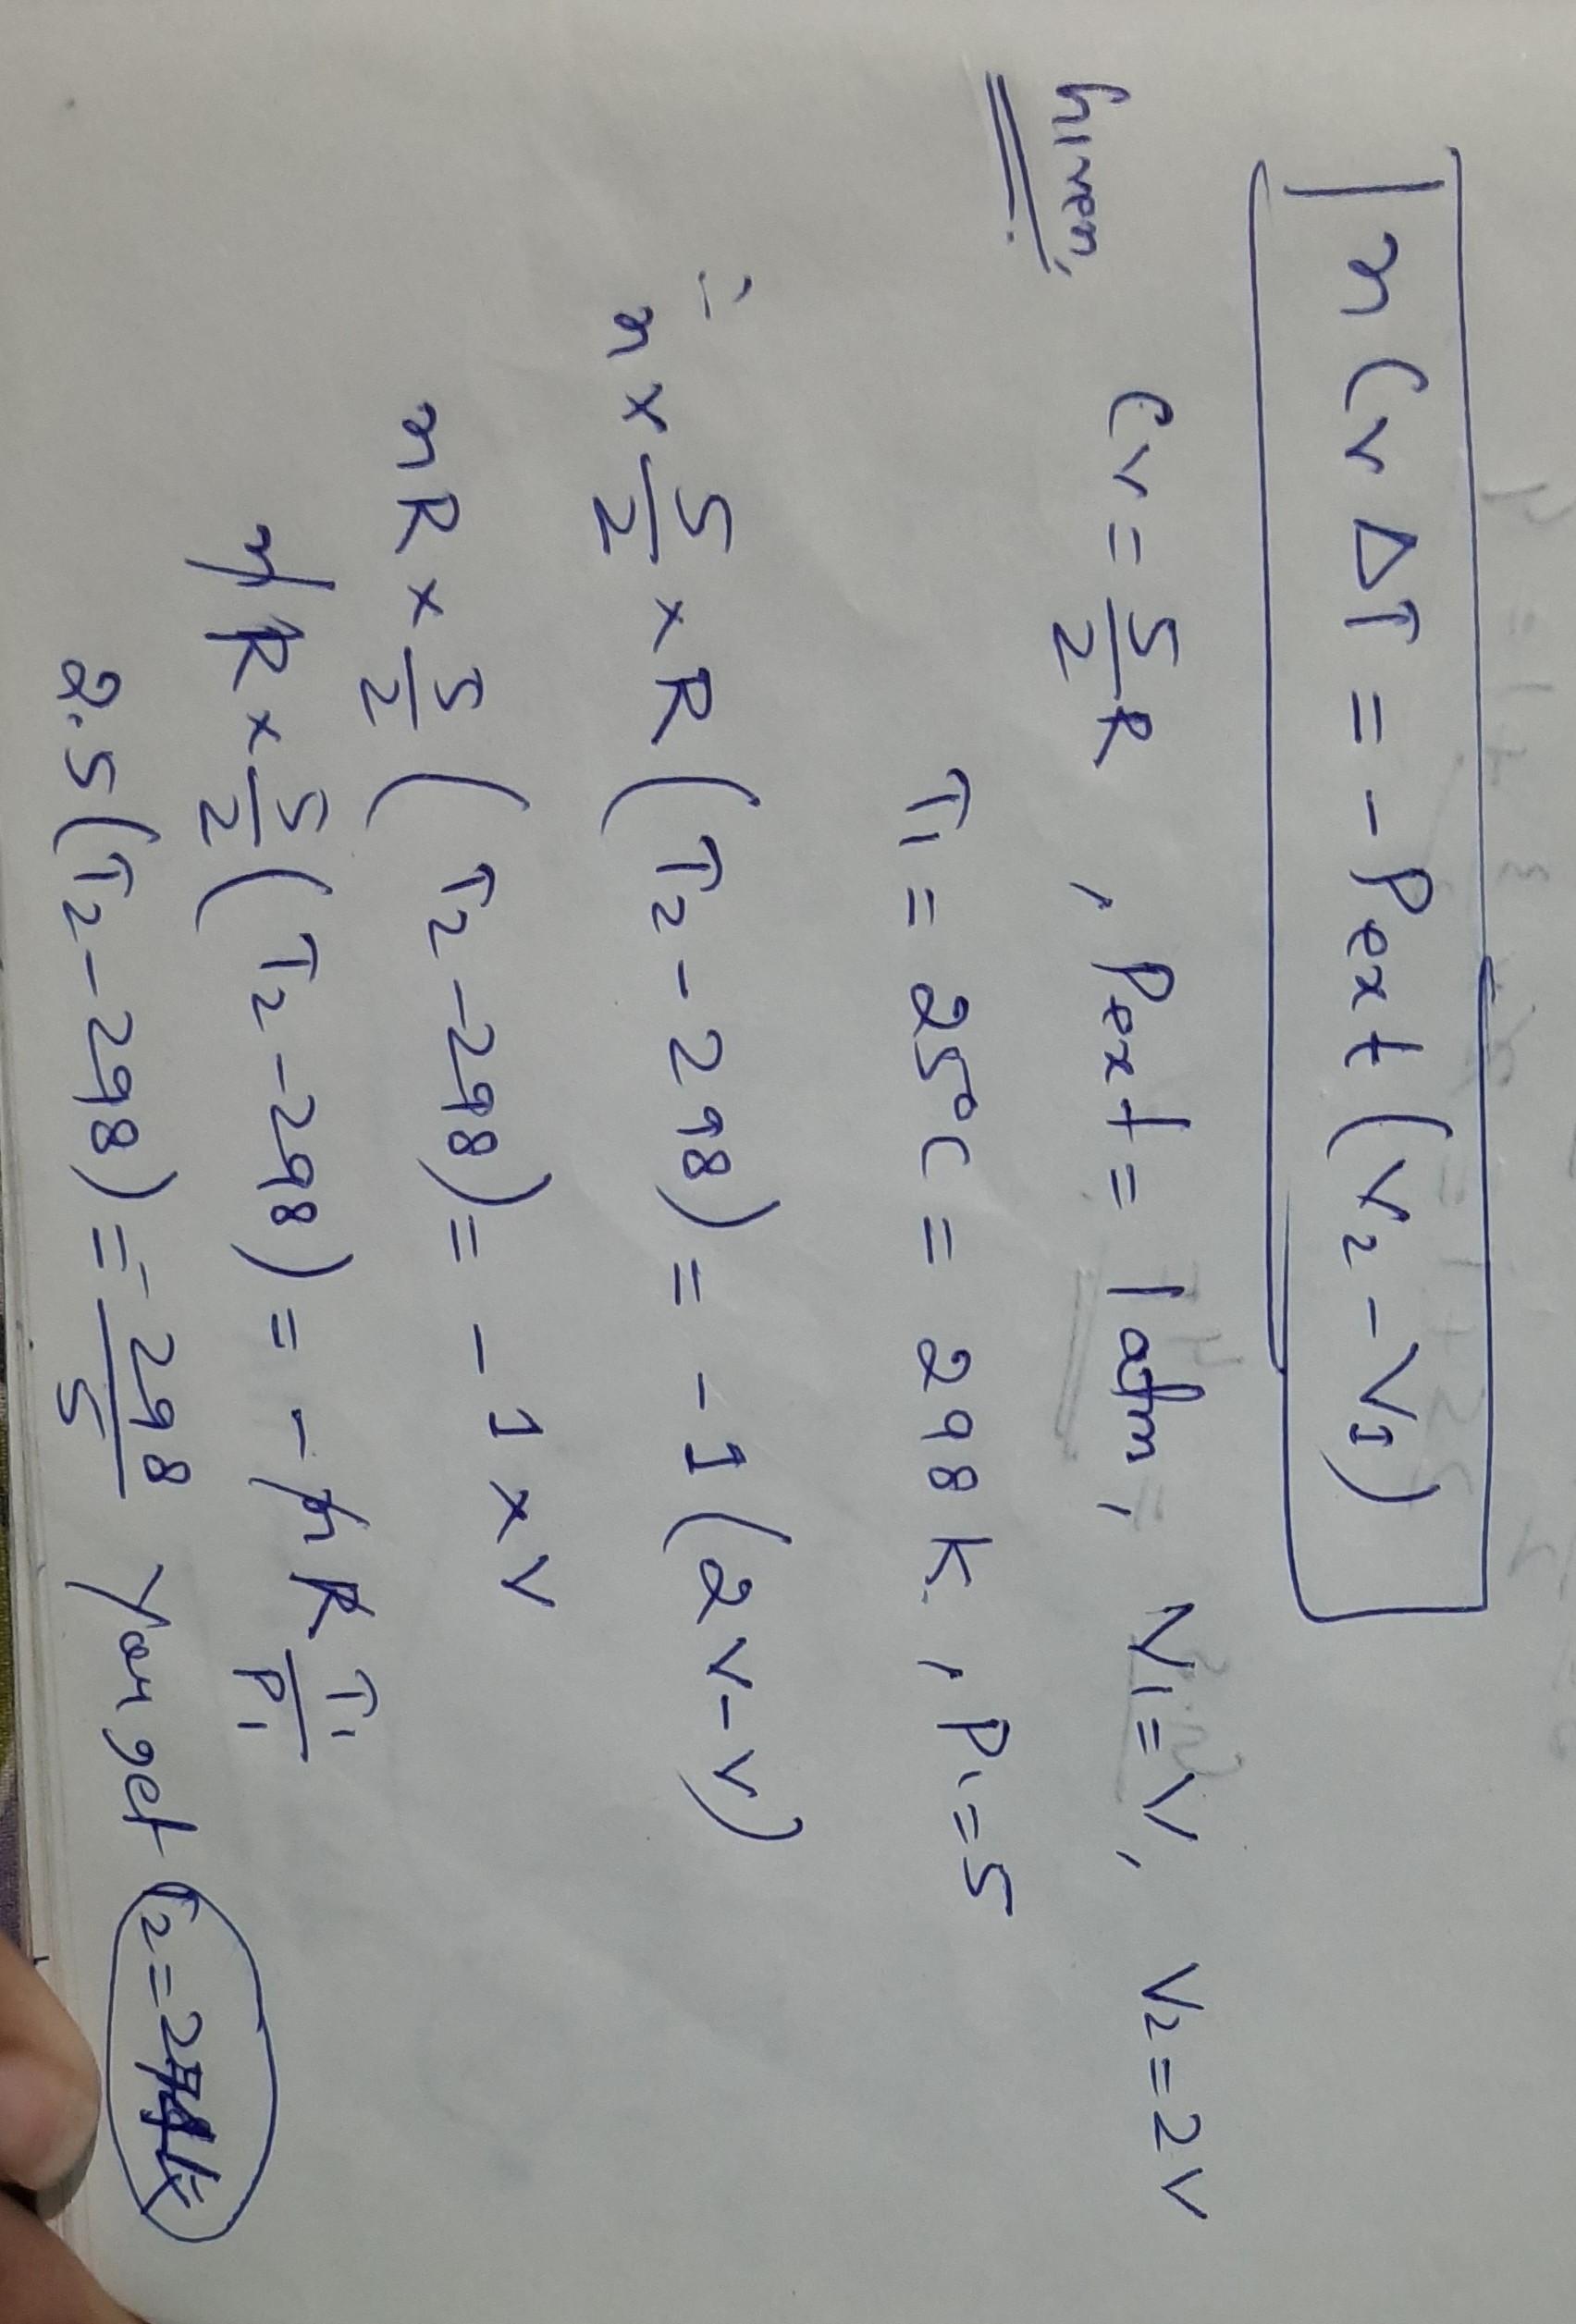 n Cv ΔT = - Pext (V2 - V1)
Given, Cv = 5/2 R , Pext = 1 atm, V1 = V, V2 = 2V
T1 = 25°C = 298 K , P1 = 5
∴ n × 5/2 × R (T2 - 298) = - 1 (2V - V)
nR × 5/2 (T2 - 298) = - 1 × V
nR × 5/2 (T2 - 298) = - nR T1/P1
2.5 (T2 - 298) = - 298/5 You get T2 =